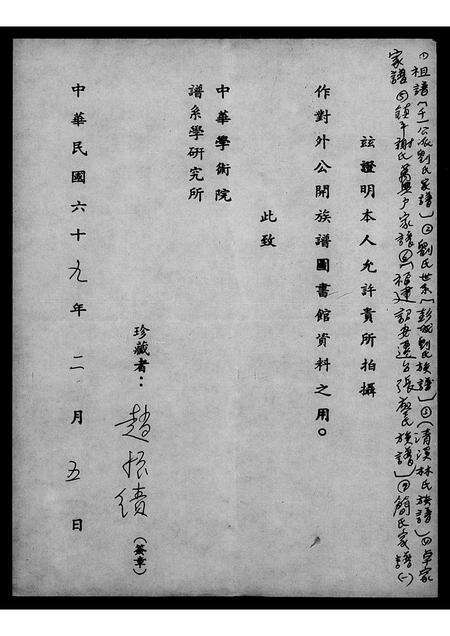 ①祖譜(千一公派劉氏家譜)②劉氏世系(彭城劉氏族譜)③(清溪林氏族譜)④卓家
家譜⑤鎮平謝氏 戶家譜⑥(福建詔安遷台張廖氏族譜)⑦簡氏家譜(一)
茲證明本人允許貴所拍攝
作對外公開族譜圖書館資料之用。
此致
中華學術院
譜系學研究所
珍藏者：趙振績（簽章）
中華民國六十九年二月五日